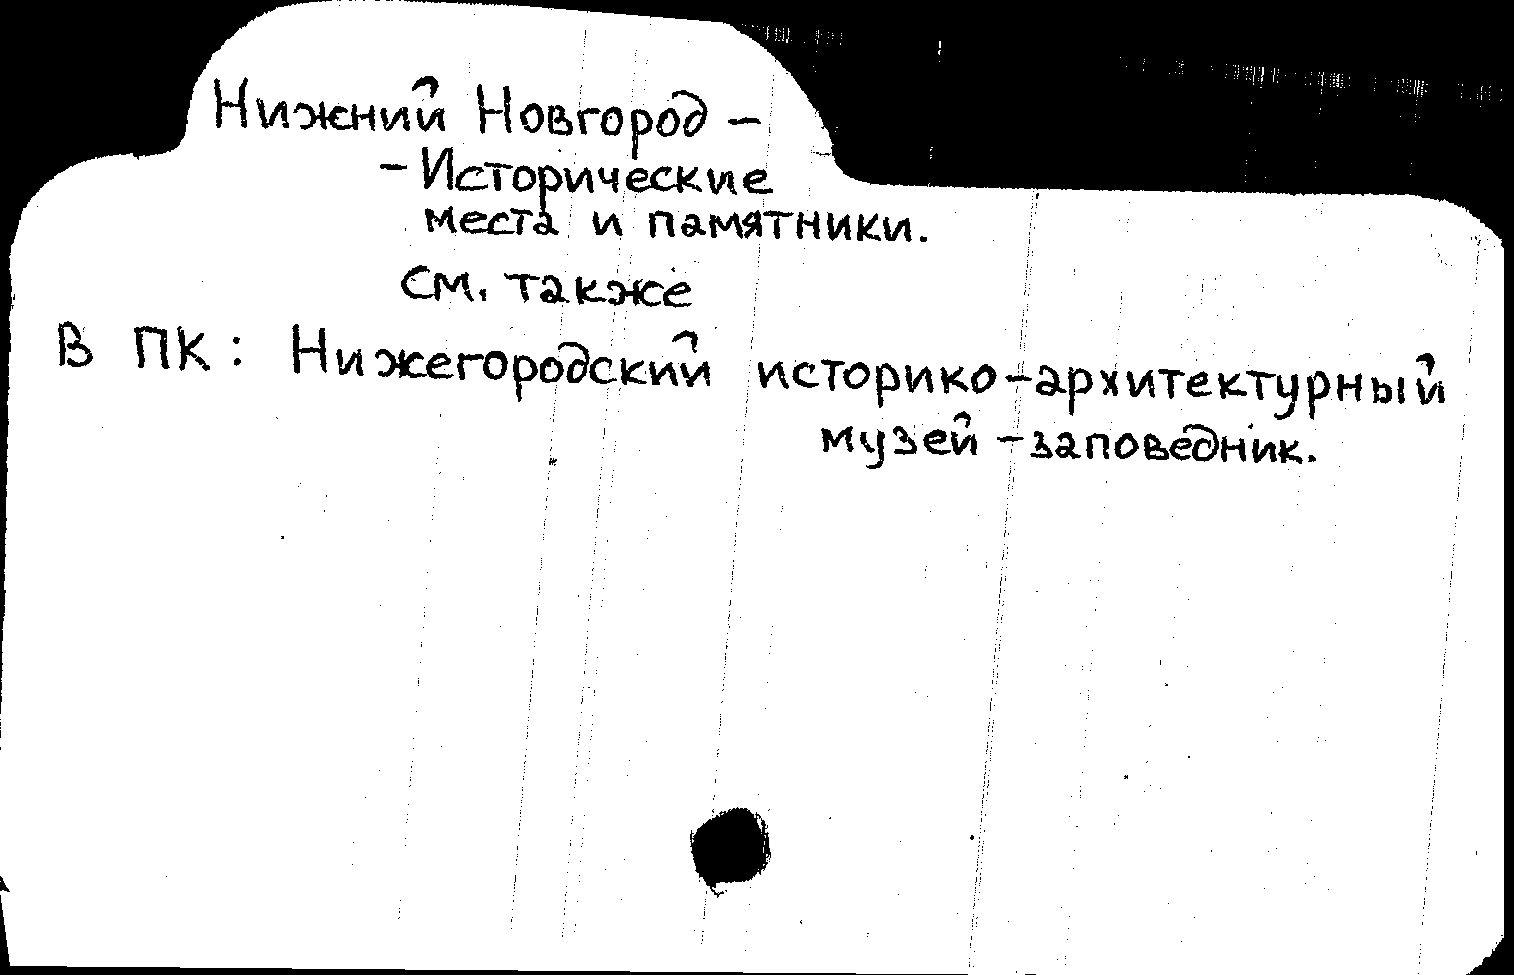 Нижний Новгород –
– Исторические
места и памятники.
см. также
В ПК: Нижегородский историко-архитектурный
музей-заповедник.